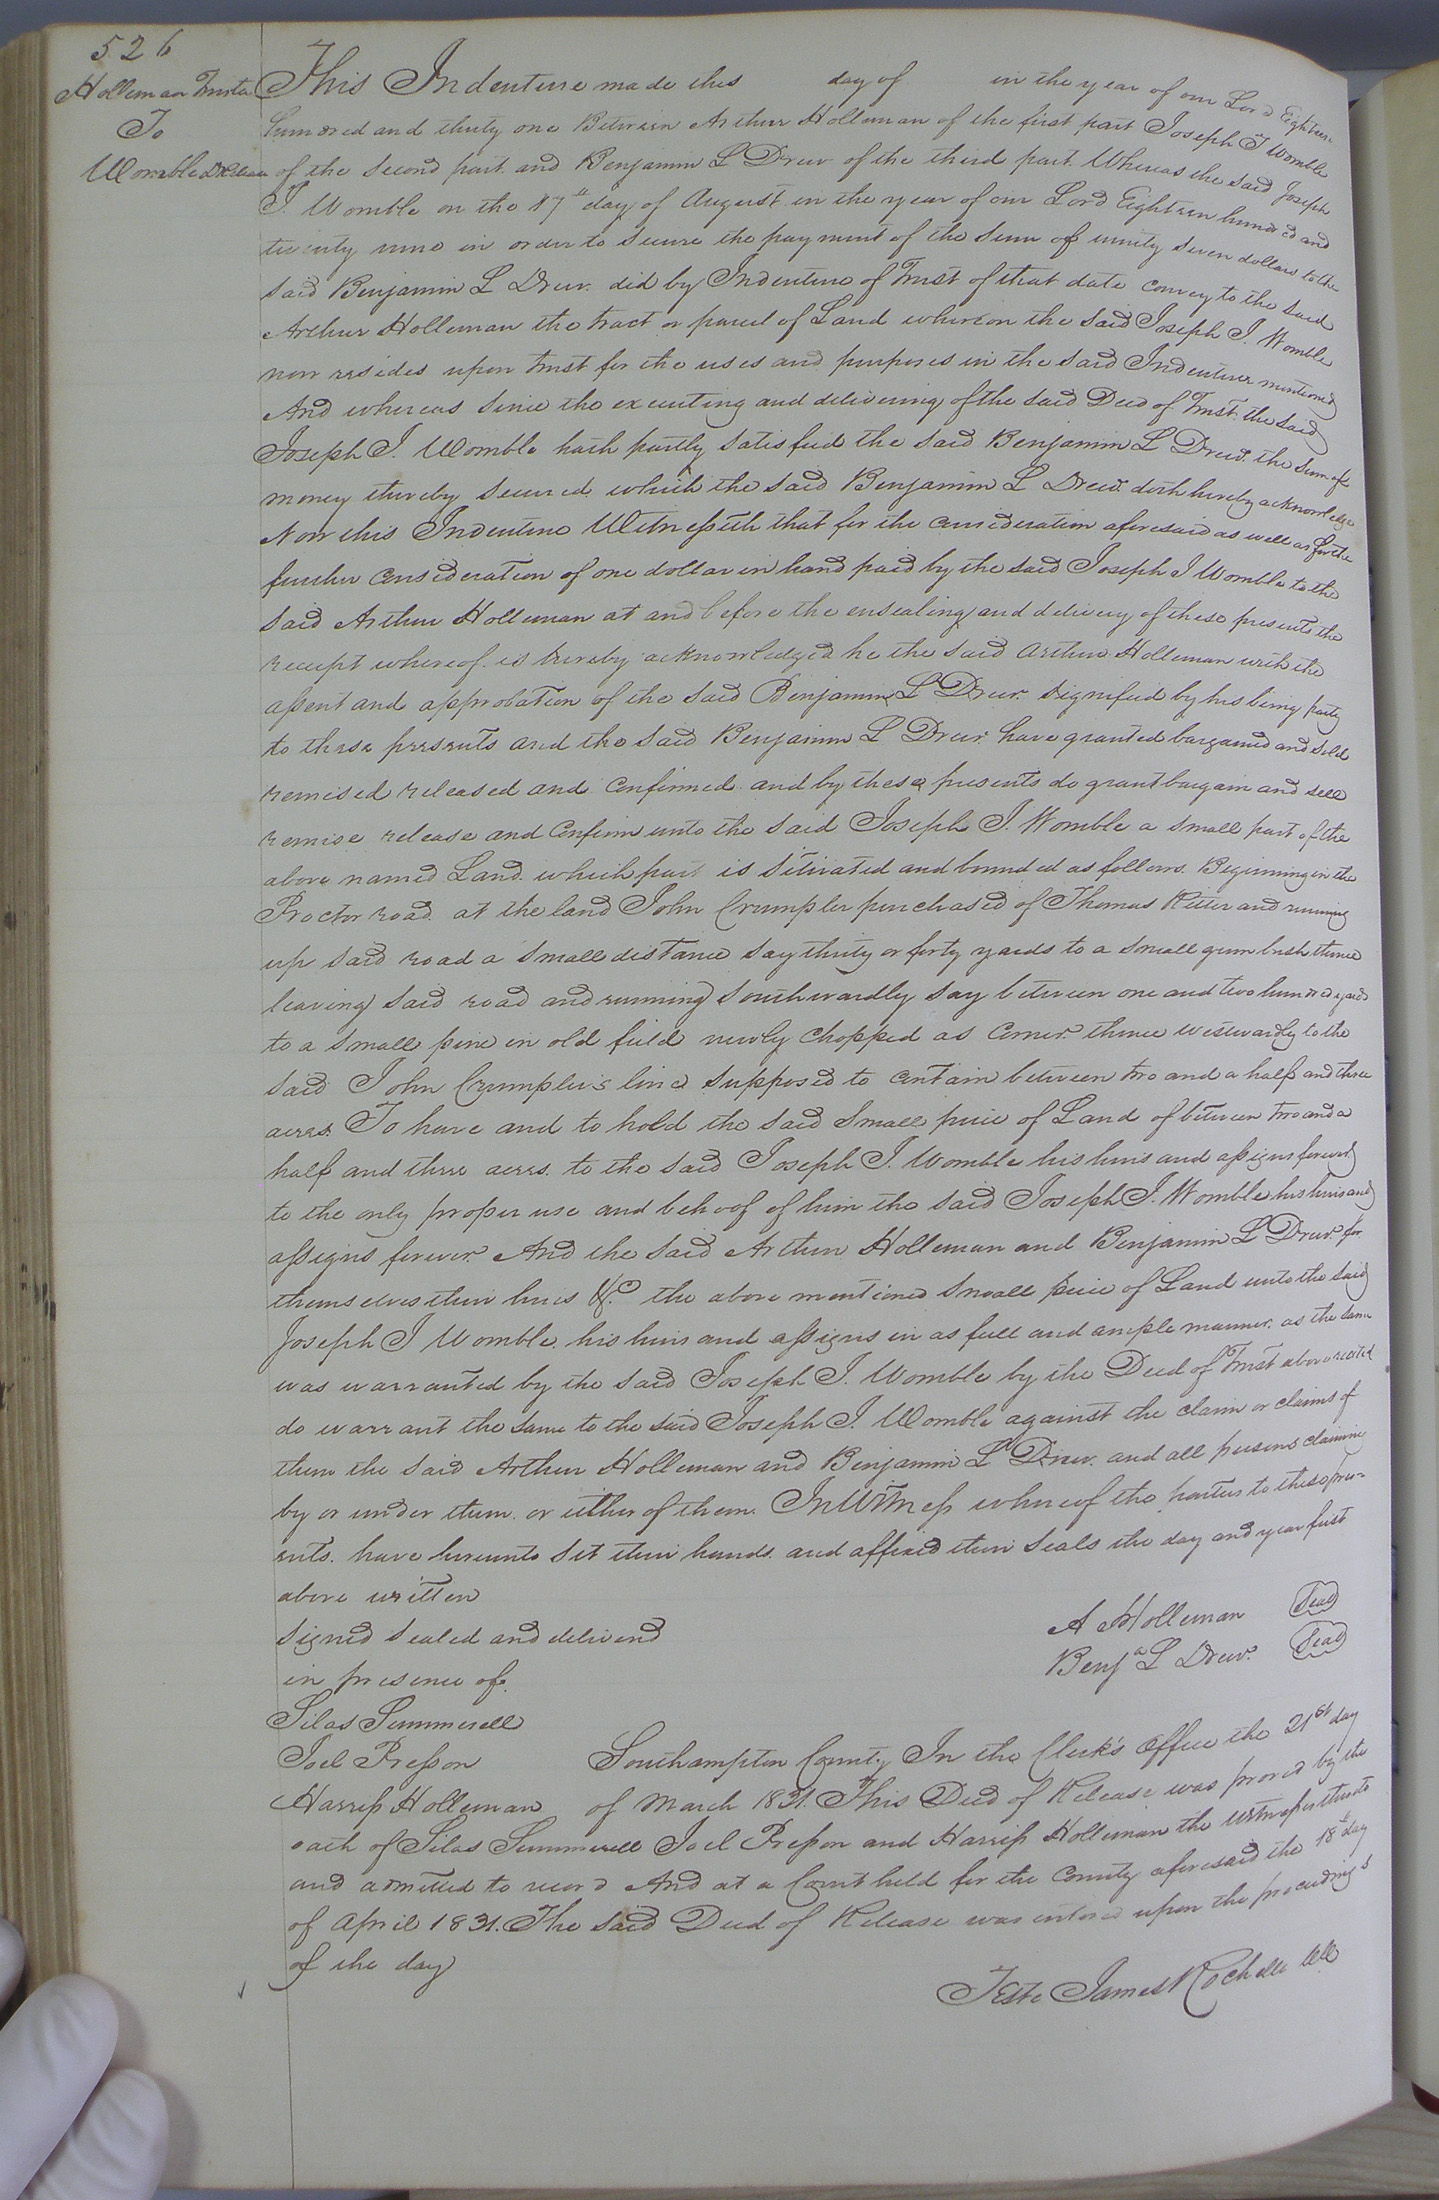 526
Holleman Trustee
To
Womble D Release
This Indenture made this day of in the year of our Lord Eighteen
hundred and thirty one Between Arthur Holleman of the first part Joseph J Womble
of the second part and Benjamin L Drew of the third part Whereas the said Joseph
J. Womble on the 17th day of August in the year of our Lord Eighteen hundred and
twenty nine in order to secure the payment of the sum of ninety seven dollars to the
said Benjamin L Drew did by Indenture of Trust of that date convey to the said
Arthur Holleman the tract or parcel of Land whereon the said Joseph J. Womble
now resides upon trust for the uses and purposes in the said Indenture mentioned
And whereas since the executing and delivering of the said Deed of Trust the said
Joseph J. Womble hath partly satisfied the said Benjamin L Drew the sum of
money thereby secured which the said Benjamin L Drew doth hereby acknowledge
Now this Indenture Witnesseth that for the consideration aforesaid as well as for the
further consideration of one dollar in hand paid by the said Joseph J Womble to the
said Arthur Holleman at and before the ensealing and delivery of these presents the
receipt whereof is hereby acknowledged he the said Arthur Holleman with the
assent and approbation of the said Benjamin L Drew signified by his being party
to these presents and the said Benjamin L Drew have granted bargained and sold
remised released and confirmed and by these presents do grant bargain and sell
remise release and confirm unto the said Joseph J. Womble a small part of the
above named Land which part is situated and bounded as follows. Beginning in the
Proctor road at the land John Crumpler purchased of Thomas Ritter and running
up said road a small distance say thirty or forty yards to a small gum bush thence
leaving said road and running southwardly say between one and two hundred yards
to a small pine in old field newly chopped as corner thence westwardly to the
said John Crumpler's line supposed to contain between two and a half and three
acres. To have and to hold the said small piece of Land of between two and a
half and three acres to the said Joseph J. Womble his heirs and assigns forever
to the only proper use and behoof of him the said Joseph J. Womble his heirs and
assigns forever And the said Arthur Holleman and Benjamin L Drew for
themselves their heirs &c the above mentioned small piece of Land unto the said
Joseph J Womble his heirs and assigns in as full and ample manner as the same
was warranted by the said Joseph J. Womble by the Deed of Trust above recited
do warrant the same to the said Joseph J. Womble against the claim or claims of
them the said Arthur Holleman and Benjamin L Drew and all persons claiming
by or under them or either of them. In Witness whereof the parties to these pres=
ents have hereunto set their hands and affixed their seals the day and year first
above written
signed sealed and delivered
in presence of
A Holleman Seal
Benja L Drew Seal
Silas Summerell
Joel Presson
Harriss Holleman
Southampton County In the Clerk's office the 21st day
of March 1831. This Deed of Release was proved by the
oath of Silas Summerell Joel Presson and Harriss Holleman the witnesses thereto
and admitted to record And at a Court held for the County aforesaid the 18th day
of April 1831. The said Deed of Release was entered upon the proceedings
of the day
Teste James Rochelle Clk